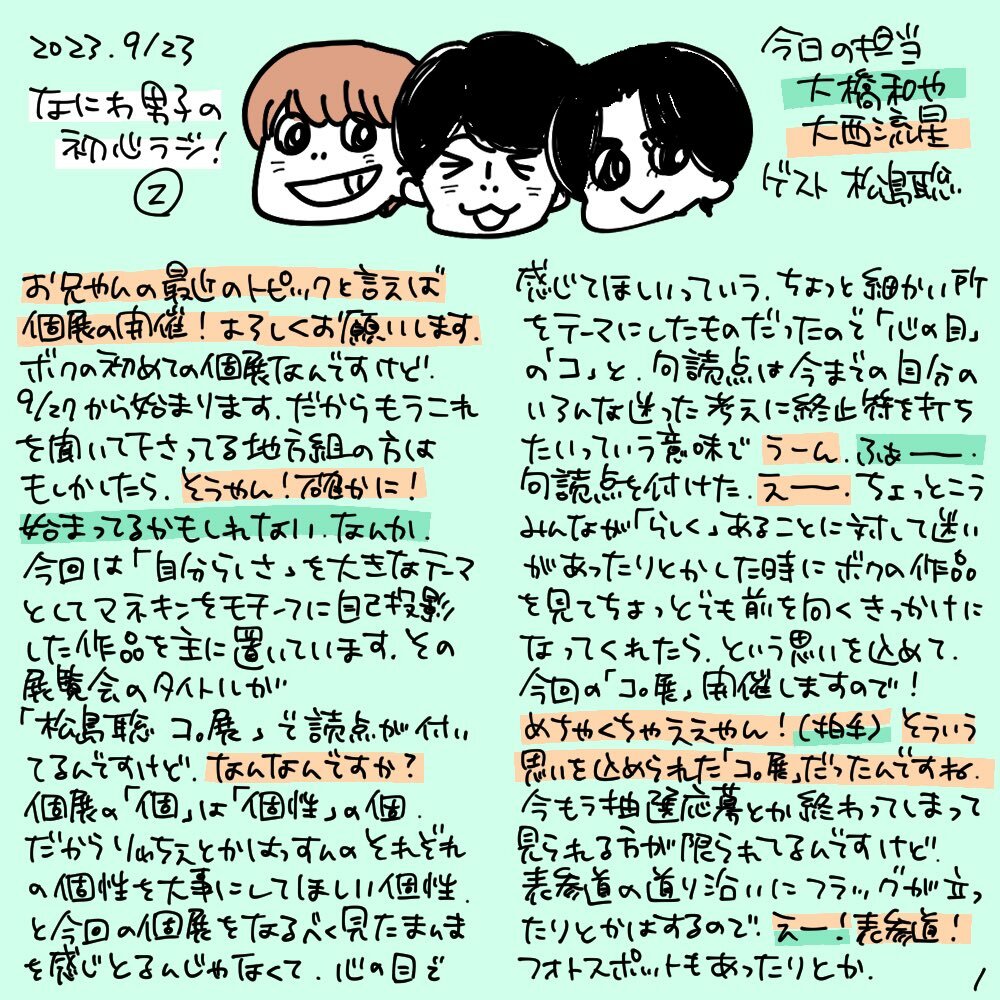 2023.9/23
なにわ男子の
初心ラジ!
②
今日の担当
大橋和也
大西流星
ゲスト 松島聡
お兄やんの最近のトピックと言えば
個展の開催!よろしくお願いします.
ボクの初めての個展なんですけど.
9/27から始まります.だからもうこれ
を聞いて下さってる地方組の方は
もしかしたら.そうやん!確かに!
始まってるかもしれない.なんか.
今回は「自分らしさ」を大きなテーマ
としてマネキンをモチーフに自己投影
した作品を主に置いています.その
展覧会のタイトルが
「松島聡 コ。展」で読点が付い
てるんですけど.なんなんですか?
個展の「個」は「個性」の個.
だからりゅちぇとかはっすんのそれぞれ
の個性を大事にしてほしい個性.
と今回の個展をなるべく見たまんま
を感じとるんじゃなくて.心の目で
感じてほしいっていう.ちょっと細かい所
をテーマにしたものだったので「心の目」
の「コ」と.句読点は今までの自分の
いろんな迷った考えに終止符を打ち
たいっていう意味で うーん.ふぁー.
句読点を付けた.えー.ちょっとこう
みんなが「らしく」あることに対して迷い
があったりとかした時にボクの作品
を見てちょっとでも前を向くきっかけに
なってくれたら.という思いを込めて.
今回の「コ。展」開催しますので!
めちゃくちゃええやん!(拍手) そういう
思いを込められた「コ。展」だったんですね.
今もう抽選応募とか終わってしまって
見られる方が限られてるんですけど.
表参道の道り沿いにフラッグが立っ
たりとかはするので.えー!表参道!
フォトスポットもあったりとか.
1